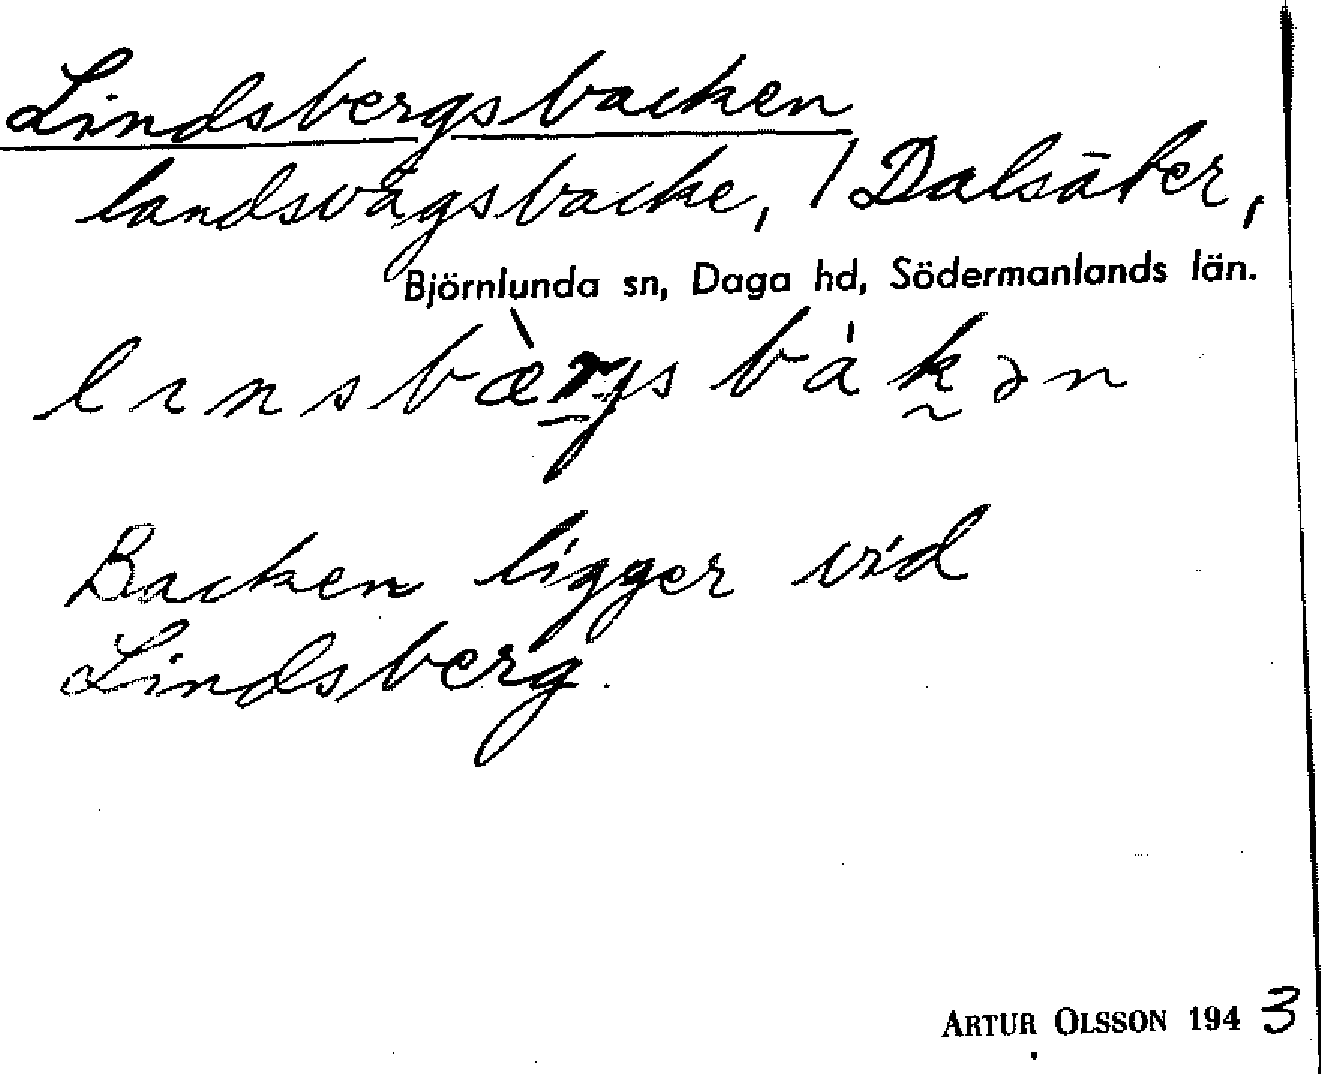 Lindsbergsbacken
landsvägsbacke, / Dalsäter,
Björnlunda sn, Daga hd, Södermanlands län.
lınsbæ̀rjs bákən
Backen ligger vid
Lindsberg.
ARTUR OLSSON 1943